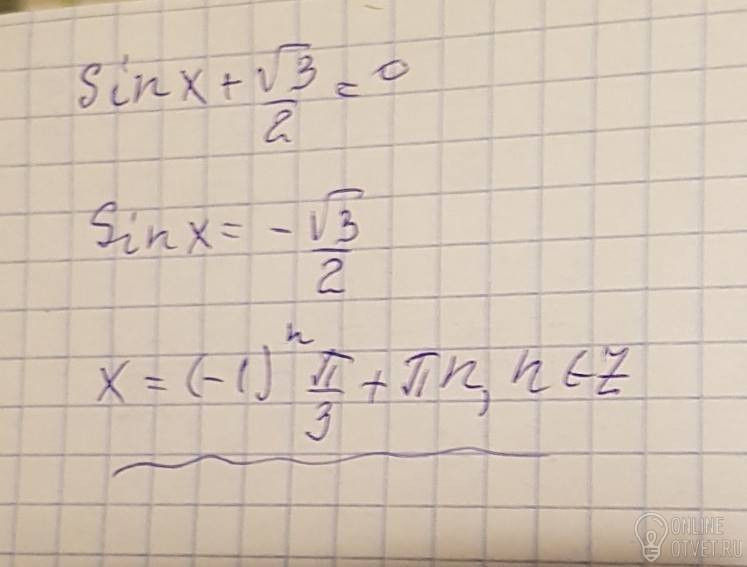 sin x + √3/2 = 0
sin x = - √3/2
x = (-1)ⁿ π/3 + πn, n ∈ Z
ONLINE
OTVET.RU